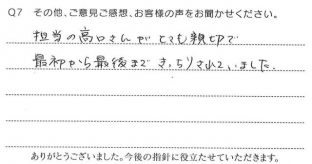 Q7 その他、ご意見ご感想、お客様の声をお聞かせください。
担当の高口さんがとても親切で
最初から最後まできっちりされていました。
ありがとうございました。今後の指針に役立たせていただきます。